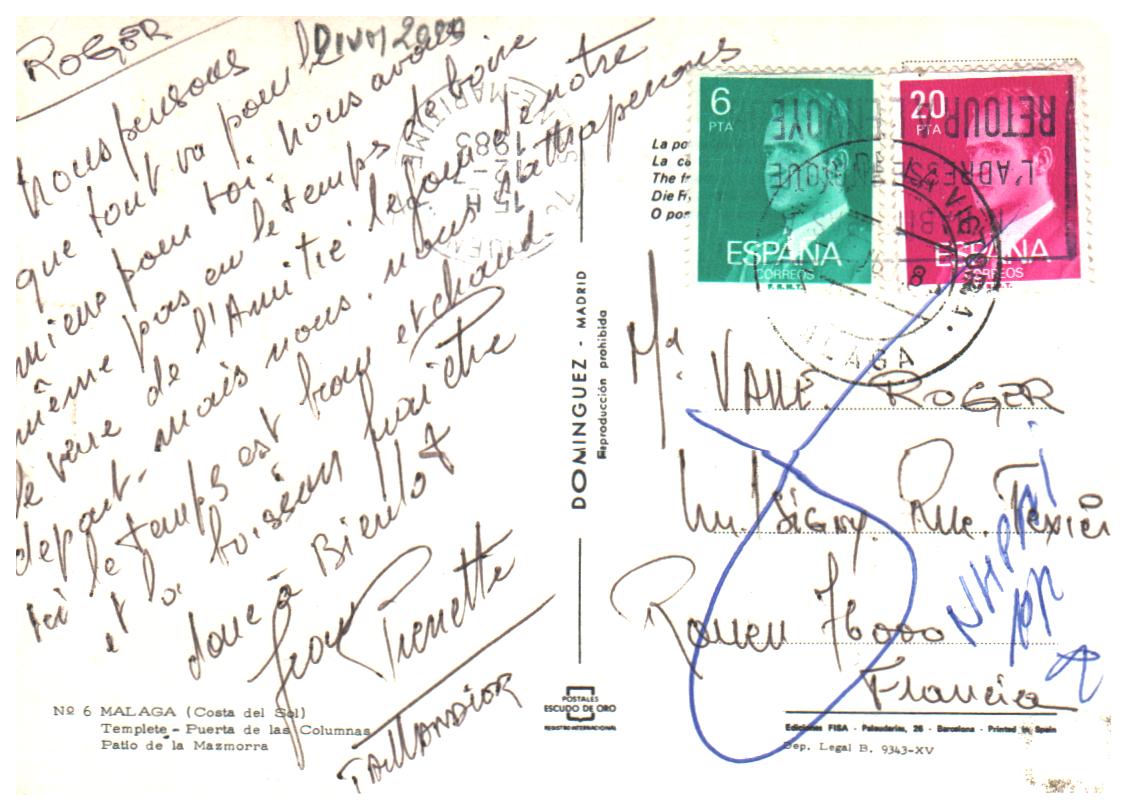 ROGER
DIVM 2000
Nous pensons
que tout va pour le
mieux pour toi. nous avons
même pas eu le temps de boire
le verre de l'Amitié le jour de notre
depart. mais nous nous rattraperons
ici le temps est beau et chaud
et la boisson fraiche
donc à Bientôt
Jean Pierrette
TAILLANDIER
Nº 6 MALAGA (Costa del Sol)
Templete - Puerta de las Columnas
Patio de la Mazmorra
DOMINGUEZ - MADRID
Reproducción prohibida
POSTALES
ESCUDO DE ORO
REGISTRO INTERNACIONAL
MARITIME
15 H
1983
La po
La ca
The fr
Die Fr
O pos
6
PTA
ESPAÑA
CORREOS
F.N.M.T.
20
PTA
ESPAÑA
CORREOS
RETOUR A L'ENVOYE
L'ADRESSE
MALAGA
Mr. VALLE. ROGER
Rue. Texier
Rouen 76000
Francia
NHPAI
Ediciones FISA - Palaudarias, 26 - Barcelona - Printed in Spain
Dep. Legal B. 9343-XV